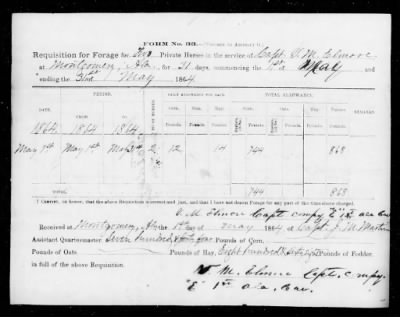 FORM No. 33.
Requisition for Forage for Two Private Horses in the service of Capt. V. M. Elmore
at Montgomery, Ala for 31 days, commencing the 1st of May and
ending the 31st May 1864
DATE. PERIOD. DAILY ALLOWANCE FOR EACH. TOTAL ALLOWANCE. REMARKS.
FROM TO Corn. Hay. Corn. Fodder.
Pounds. Pounds. Pounds. Pounds. Pounds. Pounds.
1864 1864 1864
May 1st May 1st May 31st 2 12 14 744 868
TOTAL 744 868
I CERTIFY, on honor, that the above Requisition is correct and just, and that I have not drawn Forage for any part of the time above charged.
V. M. Elmore Capt. Compy "E" 1st ala Cav
Received at Montgomery, Ala the 1st day of May 1864 of Capt. J. M.
Assistant Quartermaster Seven hundred & forty four Pounds of Corn.
Pounds of Oats Pounds of Hay, Eight hundred & sixty eight Pounds of Fodder,
in full of the above Requisition.
V. M. Elmore Capt. Compy.
"E" 1st ala. Cav.